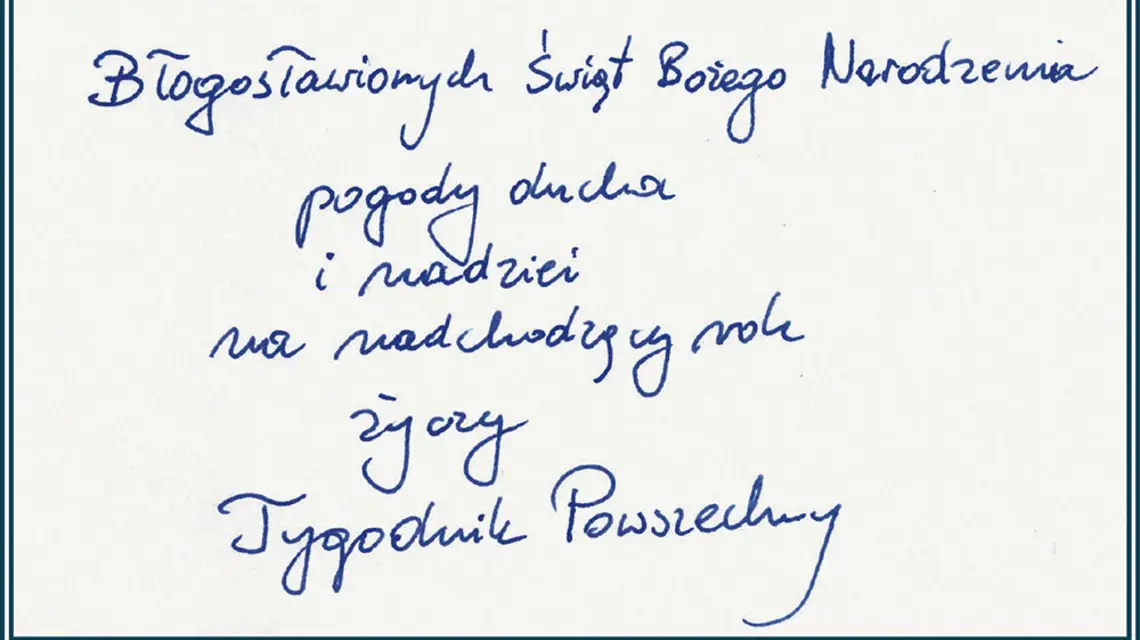 Błogosławionych Świąt Bożego Narodzenia
pogody ducha
i nadziei
na nadchodzący rok
życzy
Tygodnik Powszechny